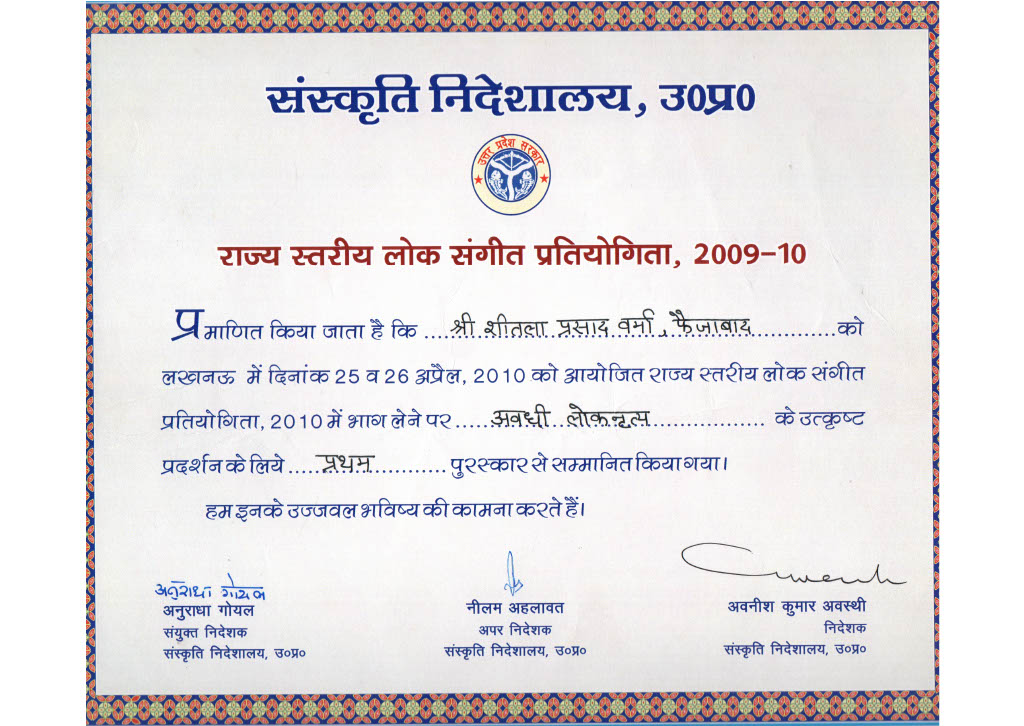 संस्कृति निदेशालय, उ०प्र०
उत्तर प्रदेश सरकार
राज्य स्तरीय लोक संगीत प्रतियोगिता, 2009-10
प्रमाणित किया जाता है कि ....श्री शीतला प्रसाद वर्मा, फैजाबाद............को
लखनऊ में दिनांक 25 व 26 अप्रैल, 2010 को आयोजित राज्य स्तरीय लोक संगीत
प्रतियोगिता, 2010 में भाग लेने पर .....अवधी लोकनृत्य................. के उत्कृष्ट
प्रदर्शन के लिये ....प्रथम........... पुरस्कार से सम्मानित किया गया।
हम इनके उज्जवल भविष्य की कामना करते हैं।
अनुराधा गोयल
अनुराधा गोयल
संयुक्त निदेशक
संस्कृति निदेशालय, उ०प्र०
नीलम अहलावत
अपर निदेशक
संस्कृति निदेशालय, उ०प्र०
अवनीश कुमार अवस्थी
निदेशक
संस्कृति निदेशालय, उ०प्र०